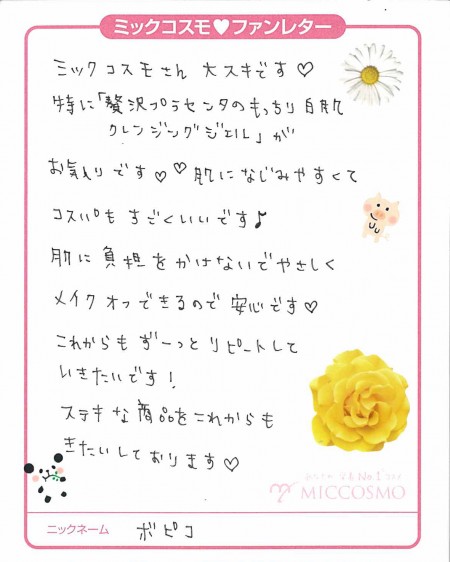 ミックコスモ♥ファンレター
ミックコスモさん 大スキです♡
特に「贅沢プラセンタのもっちり白肌
クレンジングジェル」が
お気入りです♡♡肌になじみやすくて
コスパもすごくいいです♪
肌に負担をかけないでやさしく
メイクオフできるので安心です♡
これからもずーっとリピートして
いきたいです!
ステキな商品をこれからも
きたいしております♡
No.1
MICCOSMO
ニックネーム ボピコ